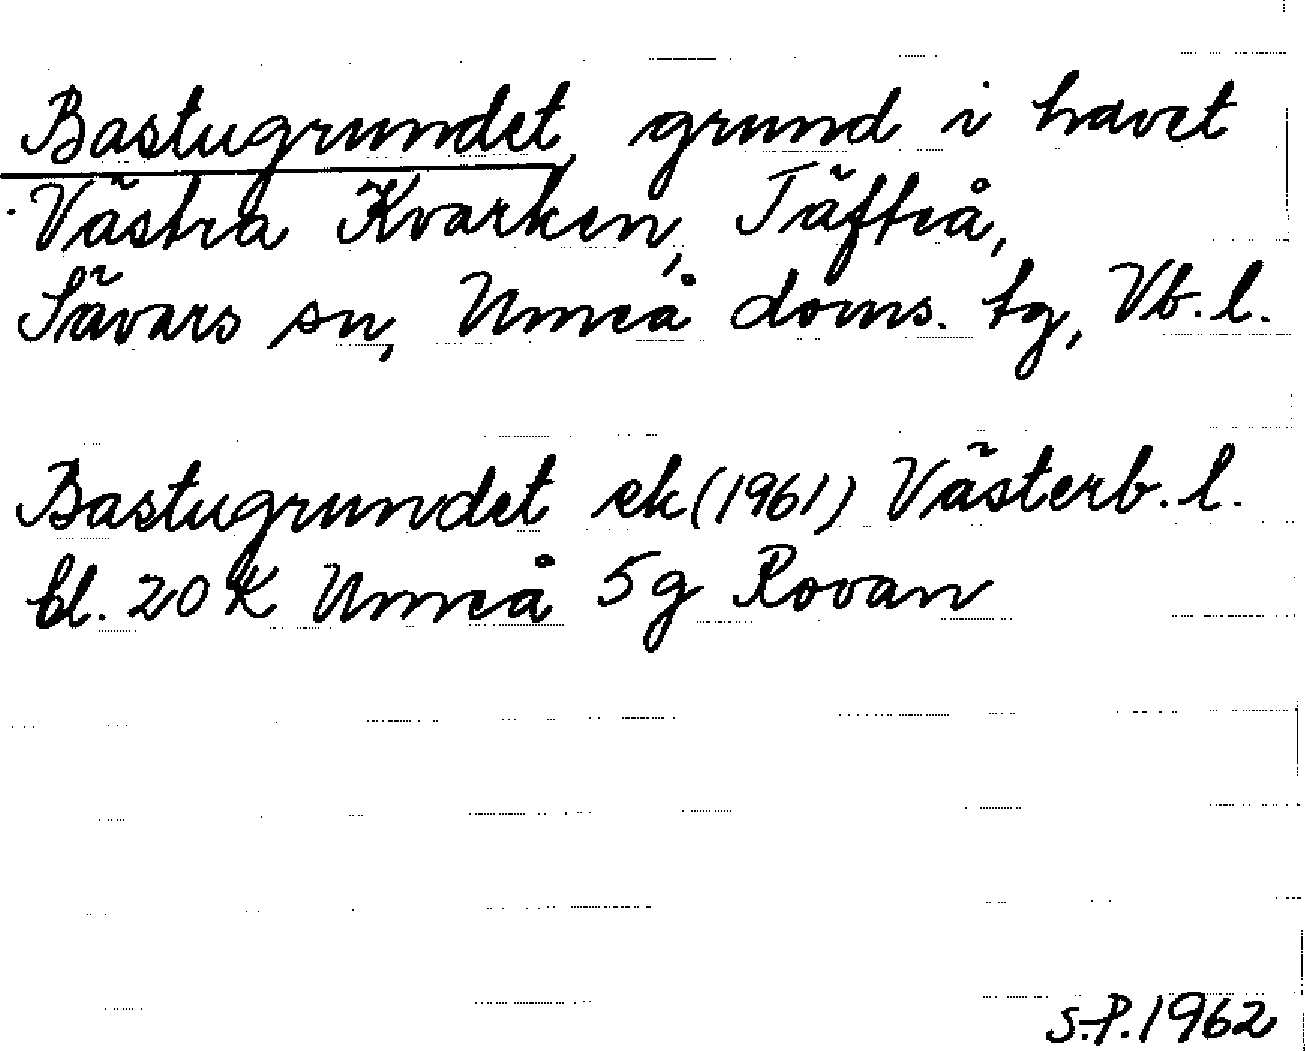 Bastugrundet, grund i havet
Västra Kvarken, Täfteå,
Sävars sn, Umeå doms. tg, Vb. l.
Bastugrundet ek (1961) Västerb. l.
bl. 20 K Umeå 5g Rovan
S.P. 1962